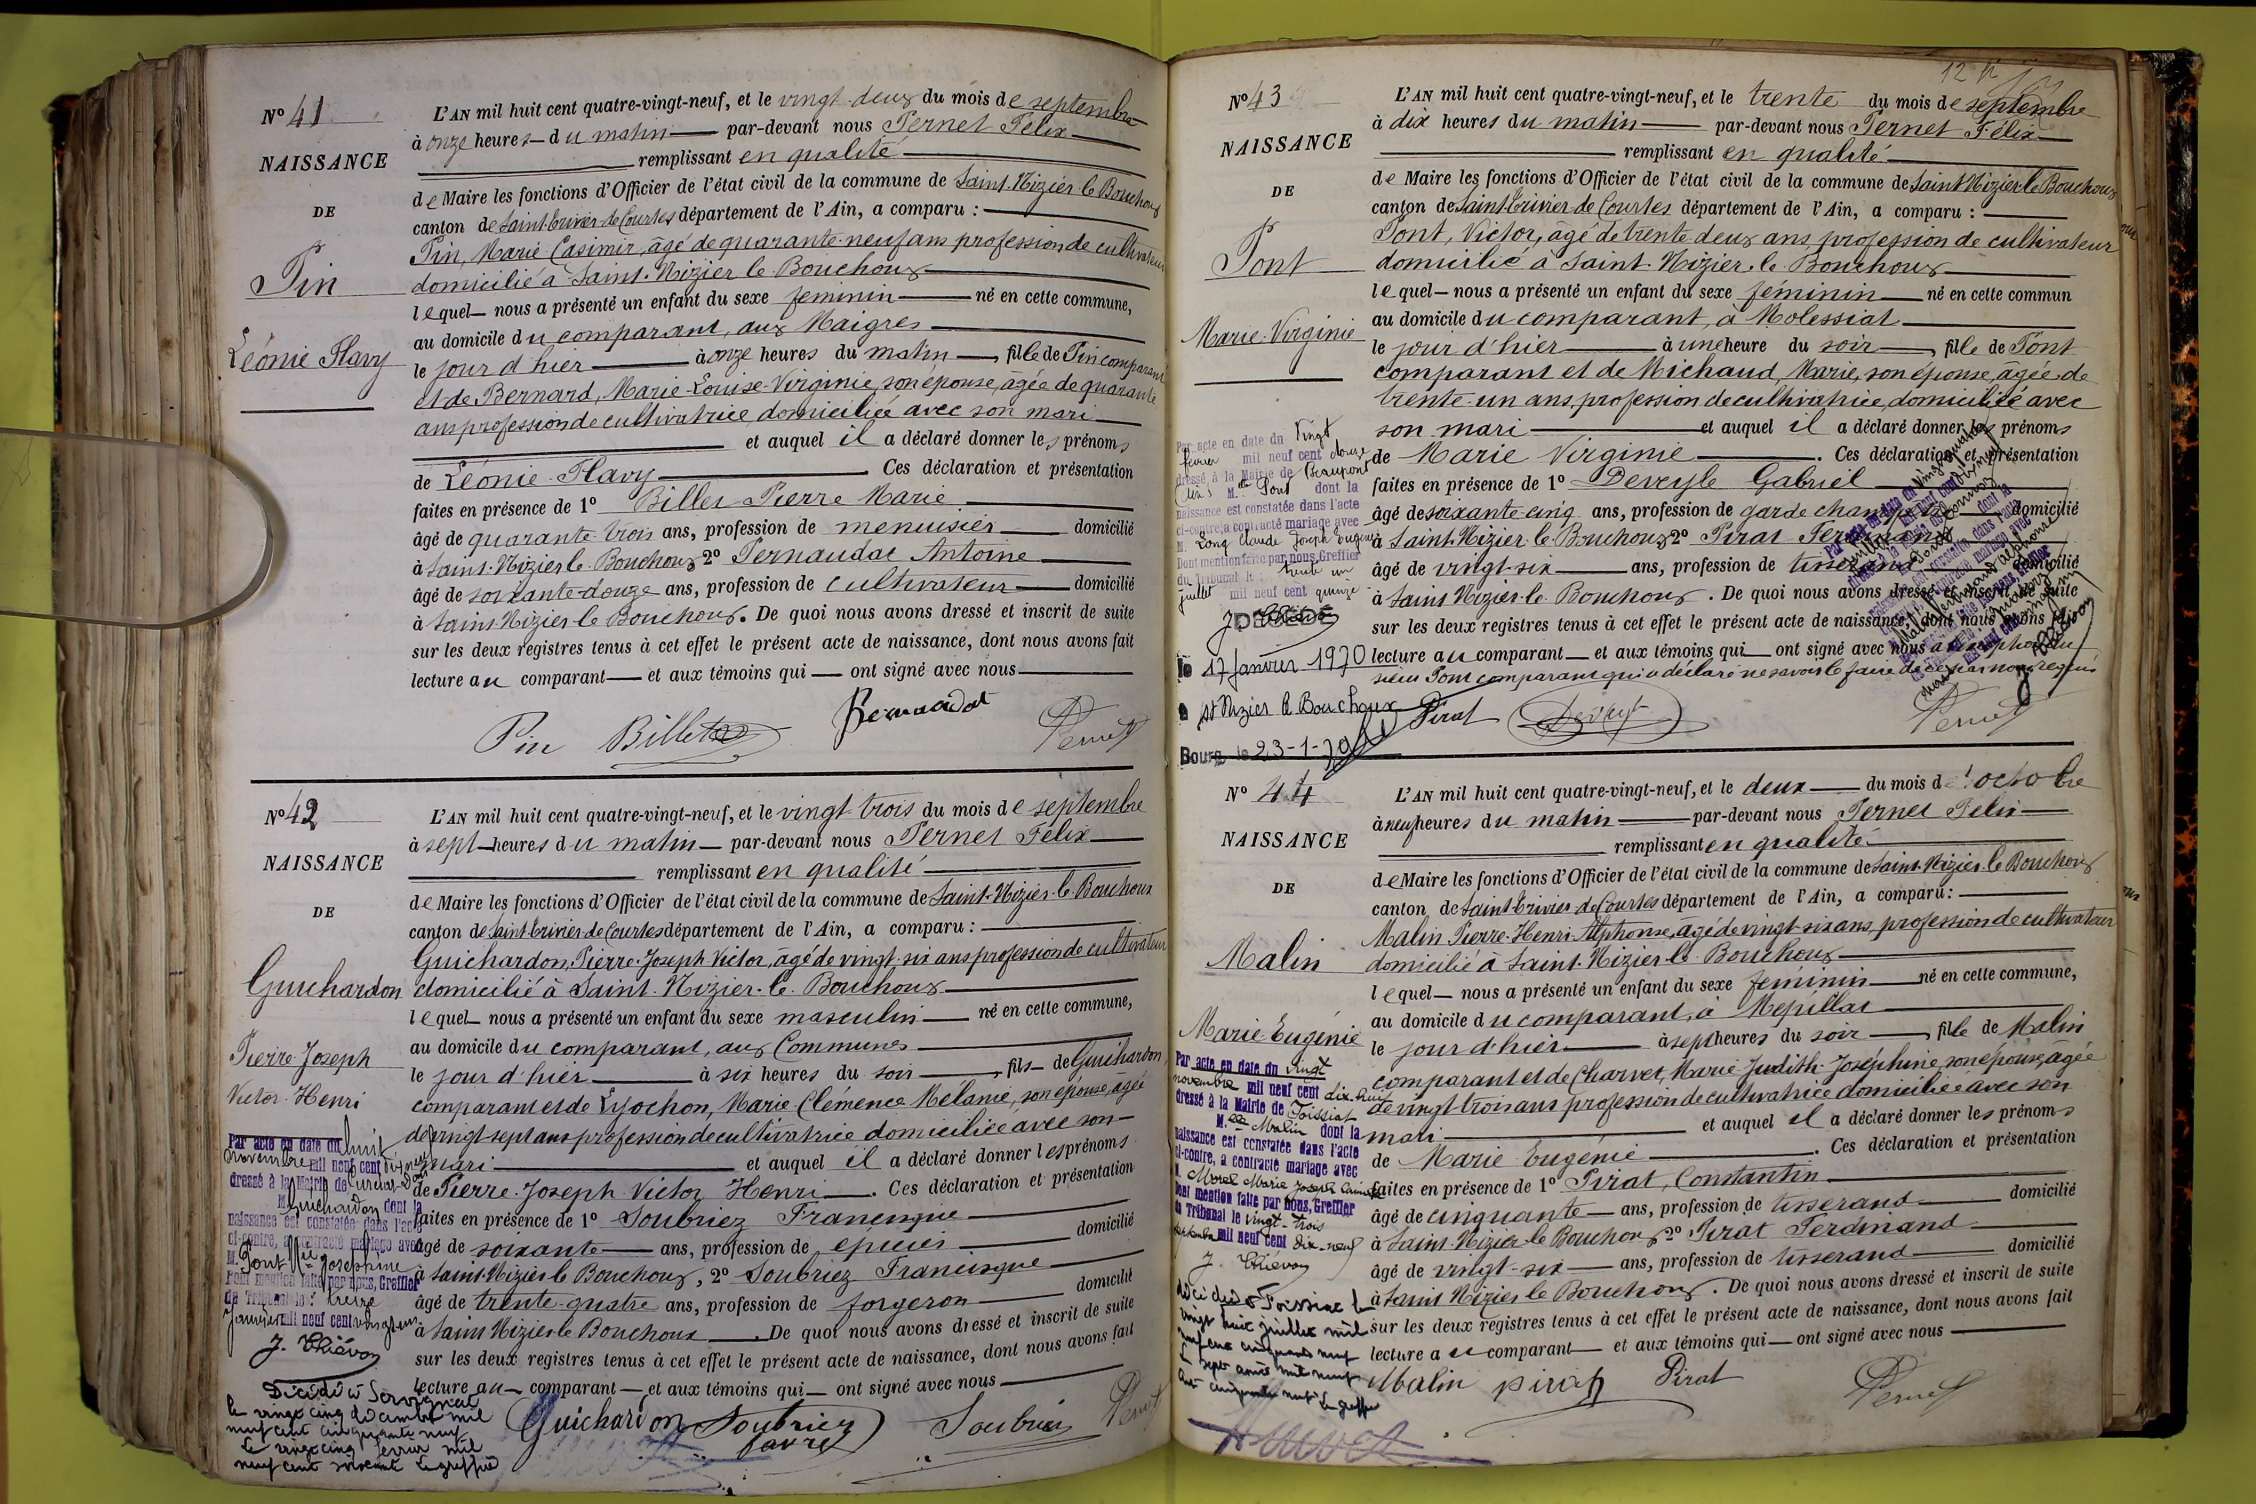 N° 41
NAISSANCE
DE
Pin
Léonie Flavy
L'AN mil huit cent quatre-vingt-neuf, et le vingt-deux du mois de septembre
à onze heures du matin par-devant nous Pernet Félix
remplissant en qualité
de Maire les fonctions d'Officier de l'état civil de la commune de Saint-Nizier-le-Bouchoux
canton de Saint-Trivier-de-Courtes département de l'Ain, a comparu :
Pin, Marie Casimir, âgé de quarante-neuf ans profession de cultivateur
domicilié à Saint-Nizier-le-Bouchoux
lequel nous a présenté un enfant du sexe féminin né en cette commune,
au domicile du comparant, aux Maigres
le jour d'hier à onze heures du matin, fille de Pin comparant
et de Bernard, Marie-Louise-Virginie, son épouse, âgée de quarante
ans profession de cultivatrice, domiciliée avec son mari
et auquel il a déclaré donner les prénoms
de Léonie Flavy Ces déclaration et présentation
faites en présence de 1° Billet Pierre Marie
âgé de quarante-trois ans, profession de menuisier domicilié
à Saint-Nizier-le-Bouchoux 2° Pernaudat Antoine
âgé de soixante-douze ans, profession de cultivateur domicilié
à Saint-Nizier-le-Bouchoux. De quoi nous avons dressé et inscrit de suite
sur les deux registres tenus à cet effet le présent acte de naissance, dont nous avons fait
lecture au comparant et aux témoins qui ont signé avec nous
Pin Billet Pernaudat Pernet
N° 42
NAISSANCE
DE
Guichardon
Pierre-Joseph
Victor-Henri
L'AN mil huit cent quatre-vingt-neuf, et le vingt-trois du mois de septembre
à sept heures du matin par-devant nous Pernet Félix
remplissant en qualité
de Maire les fonctions d'Officier de l'état civil de la commune de Saint-Nizier-le-Bouchoux
canton de Saint-Trivier-de-Courtes département de l'Ain, a comparu :
Guichardon, Pierre-Joseph Victor, âgé de vingt-six ans profession de cultivateur
domicilié à Saint-Nizier-le-Bouchoux
lequel nous a présenté un enfant du sexe masculin né en cette commune,
au domicile du comparant, aux Communes
le jour d'hier à six heures du soir, fils de Guichardon
comparant et de Lyochon, Marie Clémence Mélanie, son épouse, âgée
de vingt-sept ans profession de cultivatrice domiciliée avec son
mari et auquel il a déclaré donner les prénoms
de Pierre-Joseph Victor Henri. Ces déclaration et présentation
faites en présence de 1° Soubriez Francisque
âgé de soixante ans, profession de épicier domicilié
à Saint-Nizier-le-Bouchoux, 2° Soubriez Francisque
âgé de trente-quatre ans, profession de forgeron domicilié
à Saint-Nizier-le-Bouchoux. De quoi nous avons dressé et inscrit de suite
sur les deux registres tenus à cet effet le présent acte de naissance, dont nous avons fait
lecture au comparant et aux témoins qui ont signé avec nous
Guichardon Soubriez Soubriez Pernet
favre
Par acte en date du huit
novembre mil neuf cent dix neuf
dressé à la Mairie de
M. Guichardon dont la
naissance est constatée dans l'acte
ci-contre, a contracté mariage avec
M. Pont Mie Joséphine
Dont mention faite par nous, Greffier
du Tribunal le treize
Janvier mil neuf cent vingt un
J. Thiévon
Décédé à Servignat
le vingt cinq décembre mil
neuf cent cinquante neuf
Le vingt cinq février mil
neuf cent soixante Le greffier
N° 43
NAISSANCE
DE
Pont
Marie-Virginie
L'AN mil huit cent quatre-vingt-neuf, et le trente du mois de septembre
à dix heures du matin par-devant nous Pernet Félix
remplissant en qualité
de Maire les fonctions d'Officier de l'état civil de la commune de Saint-Nizier-le-Bouchoux
canton de Saint-Trivier-de-Courtes département de l'Ain, a comparu :
Pont, Victor, âgé de trente-deux ans, profession de cultivateur
domicilié à Saint-Nizier-le-Bouchoux
lequel nous a présenté un enfant du sexe féminin né en cette commun
au domicile du comparant, à Molessiat
le jour d'hier à une heure du soir, fille de Pont
comparant et de Michaud, Marie, son épouse, âgée de
trente-un ans, profession de cultivatrice, domiciliée avec
son mari et auquel il a déclaré donner les prénoms
de Marie Virginie. Ces déclaration et présentation
faites en présence de 1° Deveyle Gabriel
âgé de soixante-cinq ans, profession de garde champêtre domicilié
à Saint-Nizier-le-Bouchoux 2° Pirat Ferdinand
âgé de vingt-six ans, profession de tisserand domicilié
à Saint-Nizier-le-Bouchoux. De quoi nous avons dressé et inscrit de suite
sur les deux registres tenus à cet effet le présent acte de naissance, dont nous avons fait
lecture au comparant et aux témoins qui ont signé avec nous
sieur Pont comparant qui a déclaré ne savoir le faire de ce par nous requis
Pirat Deveyle Pernet
Par acte en date du Vingt
février mil neuf cent douze
dressé, à la Mairie de Beaupont
(Ain) M. Pont dont la
naissance est constatée dans l'acte
ci-contre, a contracté mariage avec
M. Long Claude Joseph Eugène
Dont mention faite par nous, Greffier
du Tribunal le trente un
juillet mil neuf cent quinze
DÉCÉDÉ
le 17 Janvier 1970
à St Nizier le Bouchoux
Bourg le 23-1-70
N° 44
NAISSANCE
DE
Malin
Marie-Eugénie
L'AN mil huit cent quatre-vingt-neuf, et le deux du mois d'octobre
à neuf heures du matin par-devant nous Pernet Félix
remplissant en qualité
de Maire les fonctions d'Officier de l'état civil de la commune de Saint-Nizier-le-Bouchoux
canton de Saint-Trivier-de-Courtes département de l'Ain, a comparu :
Malin Pierre-Henri Alphonse, âgé de vingt-six ans, profession de cultivateur
domicilié à Saint-Nizier-le-Bouchoux
lequel nous a présenté un enfant du sexe féminin né en cette commune,
au domicile du comparant, à Mépillat
le jour d'hier à sept heures du soir, fille de Malin
comparant et de Charvet, Marie-Judith-Joséphine, son épouse, âgée
de vingt-trois ans profession de cultivatrice domiciliée avec son
mari et auquel il a déclaré donner les prénoms
de Marie Eugénie. Ces déclaration et présentation
faites en présence de 1° Pirat, Constantin
âgé de cinquante ans, profession de tisserand domicilié
à Saint-Nizier-le-Bouchoux 2° Pirat Ferdinand
âgé de vingt-six ans, profession de tisserand domicilié
à Saint Nizier-le-Bouchoux. De quoi nous avons dressé et inscrit de suite
sur les deux registres tenus à cet effet le présent acte de naissance, dont nous avons fait
lecture au comparant et aux témoins qui ont signé avec nous
Malin pirat Pirat Pernet
Par acte en date du vingt
novembre mil neuf cent dix-huit
dressé à la Mairie de Foissiat
M. Malin dont la
naissance est constatée dans l'acte
ci-contre, a contracté mariage avec
M. Morel Marie Joseph
Dont mention faite par nous, Greffier
du Tribunal le vingt-trois
septembre mil neuf cent dix-neuf
J. Thiévon
décédée à Foissiat le
vingt huit juillet mil
neuf cent cinquante neuf
Le sept août mil neuf
cent cinquante neuf Le greffier